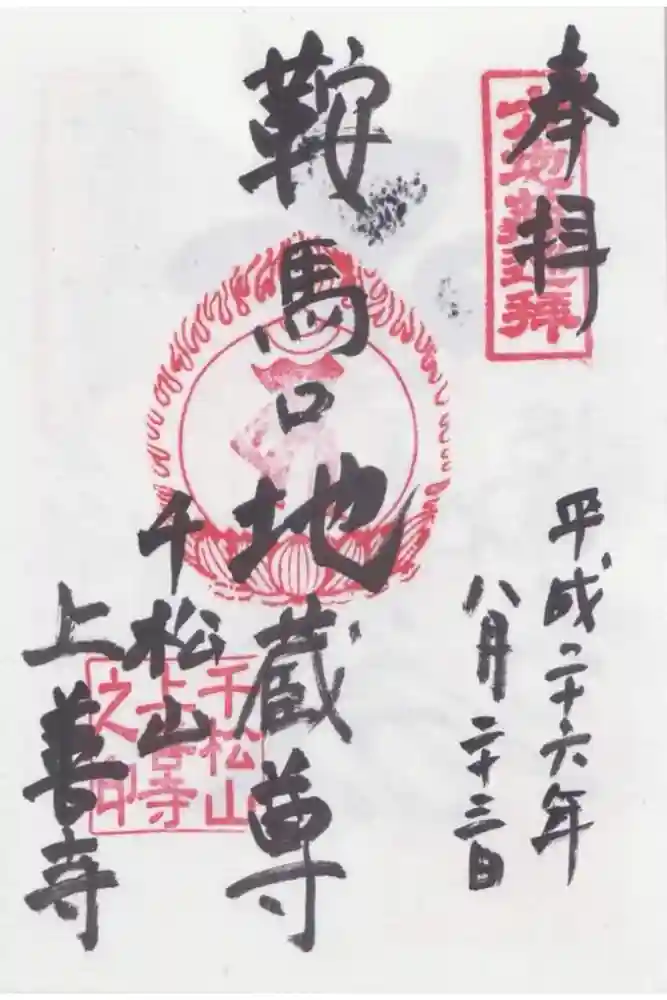 奉拝
六地蔵巡拝
平成二十六年
八月二十三日
鞍馬口地蔵尊
千松山
上善寺
千松山
上善寺
之印